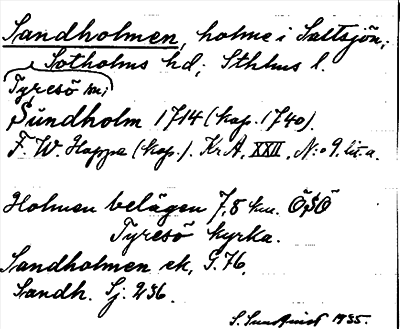 Sandholmen, holme i Saltsjön,
Sotholms hd, Sthlms l.
Tyresö sn;
Sundholm 1714 (kop. 1740).
F. W. Hoppe (kop.). Kr A, XXII, N:o 9. lit. a.
Holmen belägen 7,8 km. ÖSÖ
Tyresö kyrka.
Sandholmen ek, S. 76,
Sandh. Sj. 236.
S. Sundqvist 1935.